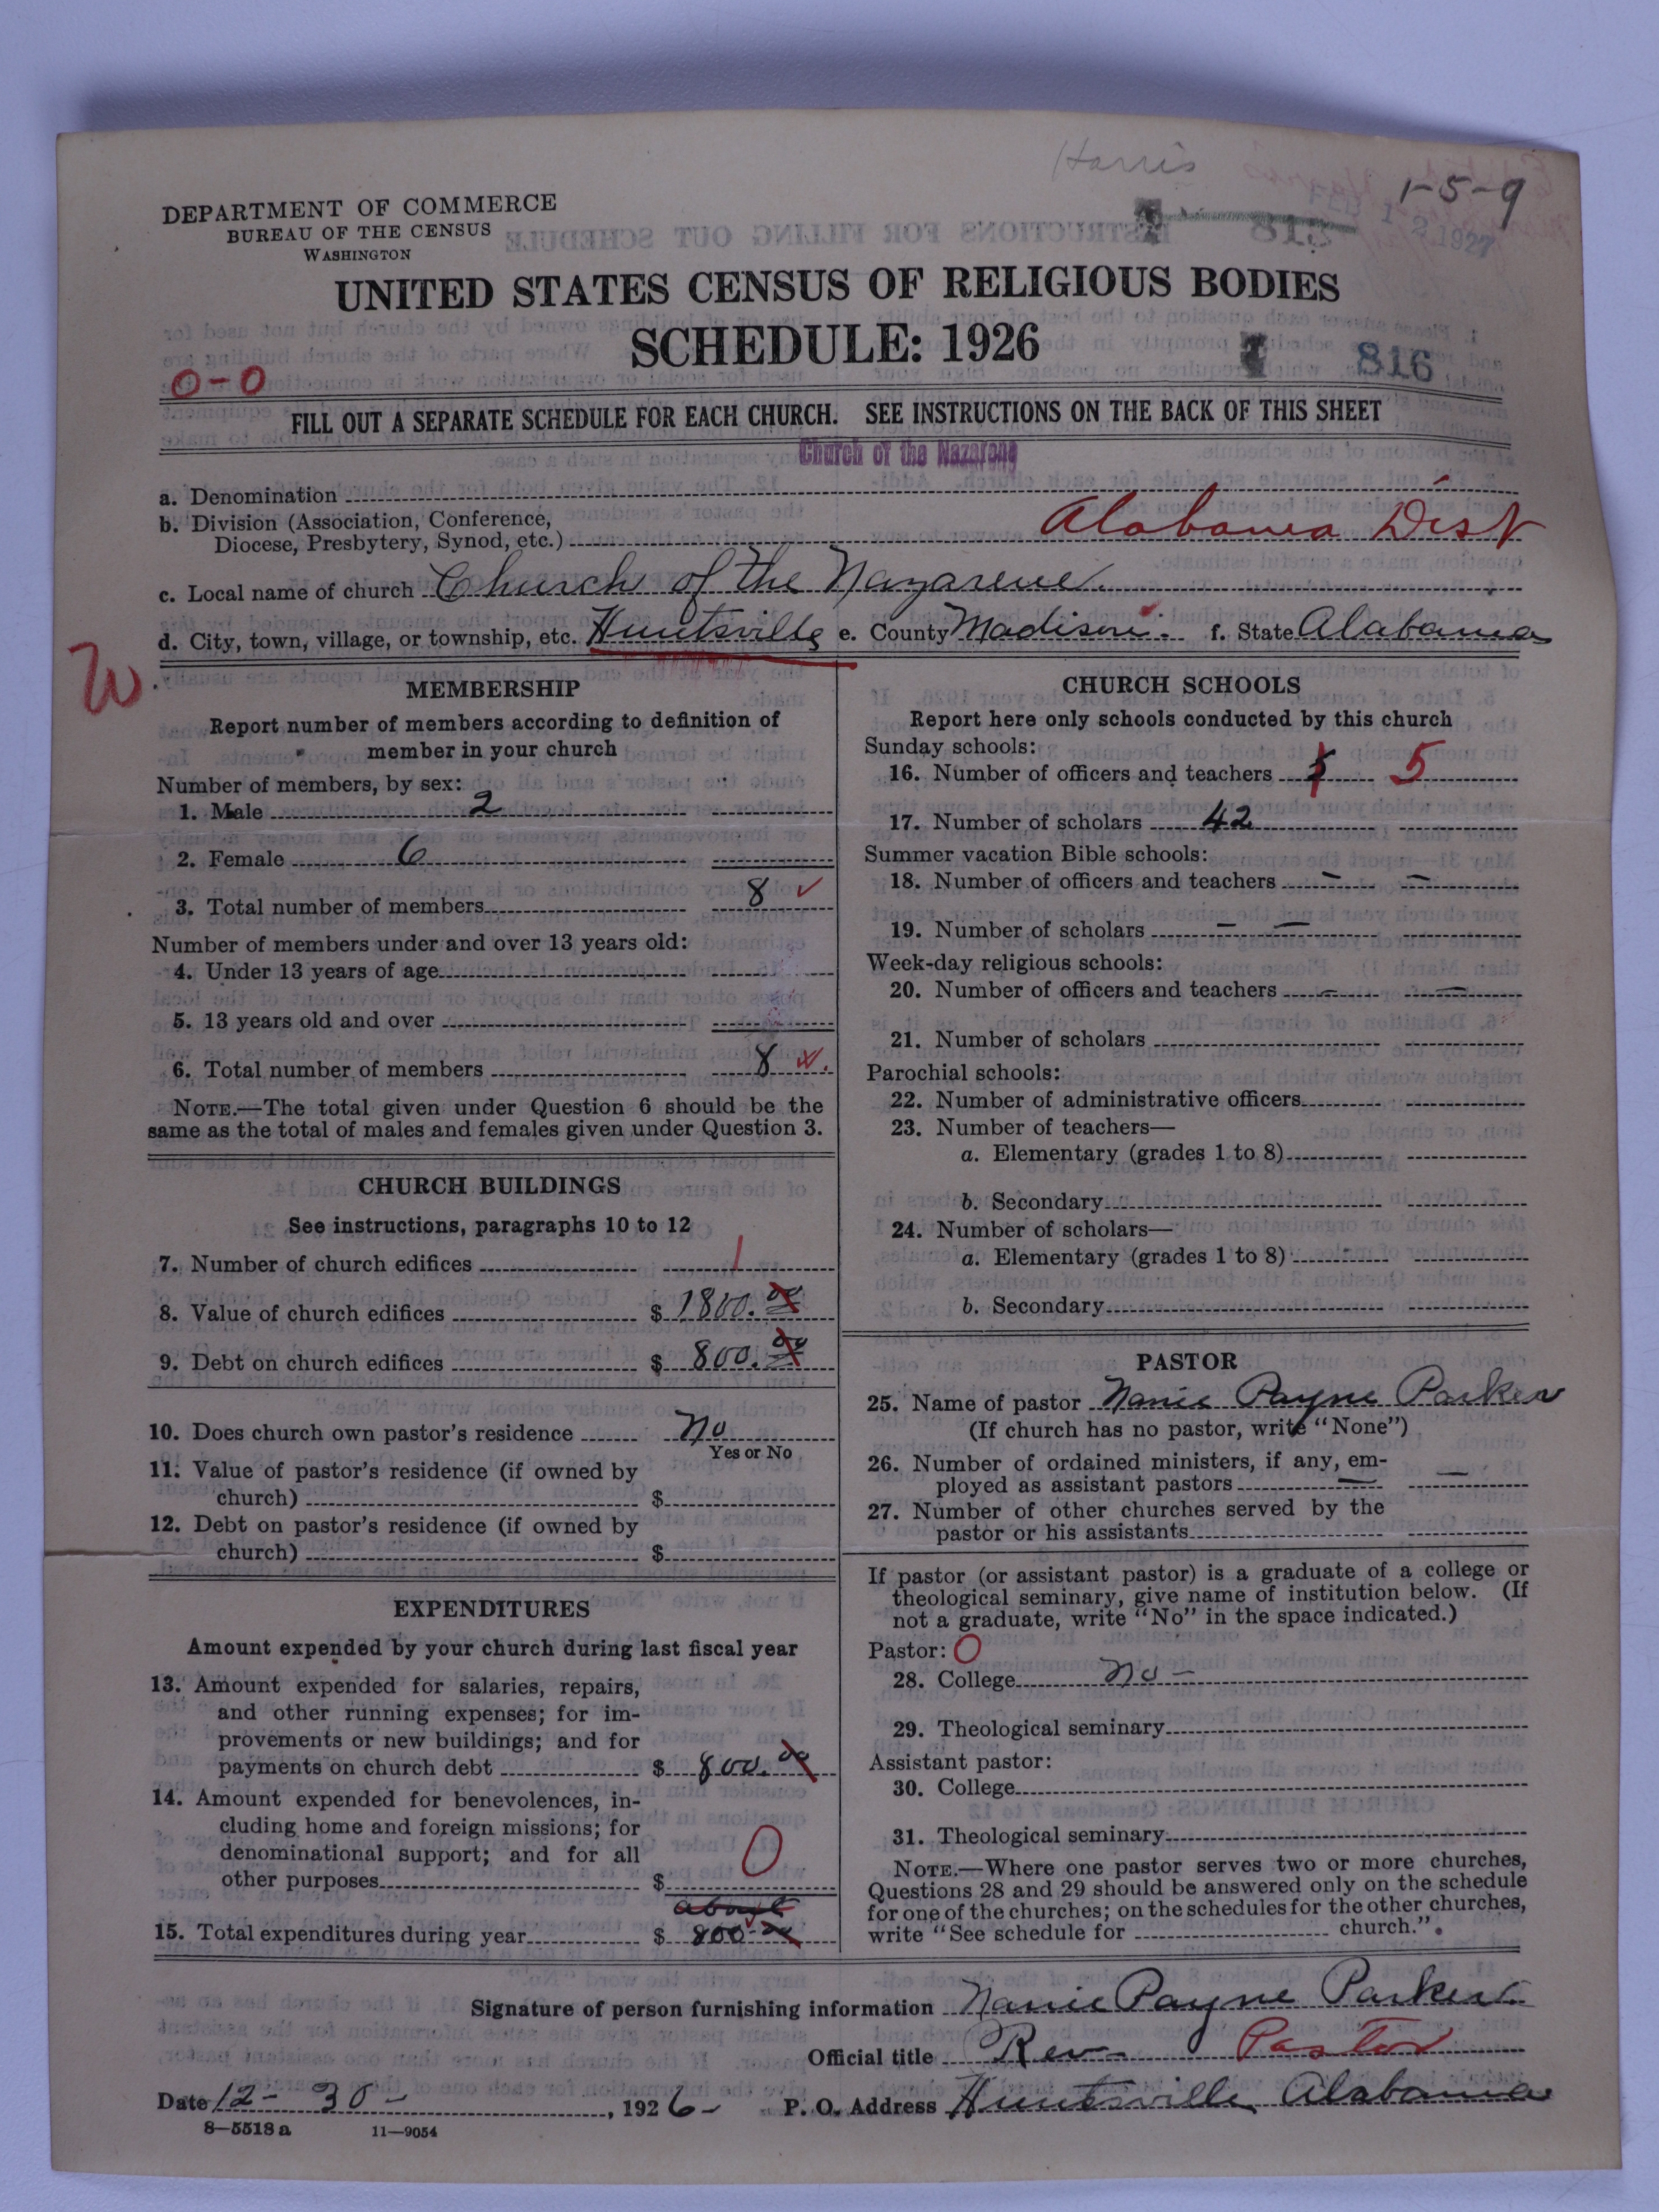 Harris
1-5-9
DEPARTMENT OF COMMERCE
BUREAU OF THE CENSUS
WASHINGTON
UNITED STATES CENSUS OF RELIGIOUS BODIES
SCHEDULE: 1926
816
0-0
FILL OUT A SEPARATE SCHEDULE FOR EACH CHURCH. SEE INSTRUCTIONS ON THE BACK OF THIS SHEET
Church of the Nazarene
a. Denomination
b. Division (Association, Conference,
Diocese, Presbytery, Synod, etc.) Alabama Dist
c. Local name of church Church of the Nazarene.
d. City, town, village, or township, etc. Huntsville e. County Madison. f. State Alabama
W
MEMBERSHIP
Report number of members according to definition of
member in your church
Number of members, by sex:
1. Male 2
2. Female 6
3. Total number of members 8 ✓
Number of members under and over 13 years old:
4. Under 13 years of age
5. 13 years old and over
6. Total number of members 8
NOTE.—The total given under Question 6 should be the
same as the total of males and females given under Question 3.
CHURCH BUILDINGS
See instructions, paragraphs 10 to 12
7. Number of church edifices 1
8. Value of church edifices $ 1800.00
9. Debt on church edifices $ 800.00
10. Does church own pastor's residence No
Yes or No
11. Value of pastor's residence (if owned by
church) $
12. Debt on pastor's residence (if owned by
church) $
EXPENDITURES
Amount expended by your church during last fiscal year
13. Amount expended for salaries, repairs,
and other running expenses; for im-
provements or new buildings; and for
payments on church debt $ 800.00
14. Amount expended for benevolences, in-
cluding home and foreign missions; for
denominational support; and for all
other purposes $ 0
about
15. Total expenditures during year $ 800.00
CHURCH SCHOOLS
Report here only schools conducted by this church
Sunday schools:
16. Number of officers and teachers 5 5
17. Number of scholars 42
Summer vacation Bible schools:
18. Number of officers and teachers — —
19. Number of scholars — —
Week-day religious schools:
20. Number of officers and teachers — —
21. Number of scholars
Parochial schools:
22. Number of administrative officers
23. Number of teachers—
a. Elementary (grades 1 to 8)
b. Secondary
24. Number of scholars—
a. Elementary (grades 1 to 8)
b. Secondary
PASTOR
25. Name of pastor Nanie Payne Parker
(If church has no pastor, write "None")
26. Number of ordained ministers, if any, em-
ployed as assistant pastors — —
27. Number of other churches served by the
pastor or his assistants
If pastor (or assistant pastor) is a graduate of a college or
theological seminary, give name of institution below. (If
not a graduate, write "No" in the space indicated.)
Pastor: 0
28. College No —
29. Theological seminary
Assistant pastor:
30. College
31. Theological seminary
NOTE.—Where one pastor serves two or more churches,
Questions 28 and 29 should be answered only on the schedule
for one of the churches; on the schedules for the other churches,
write "See schedule for church."
Signature of person furnishing information Nanie Payne Parker
Official title Rev— Pastor
Date 12-30-, 1926- P. O. Address Huntsville Alabama
8—5518a 11—9054